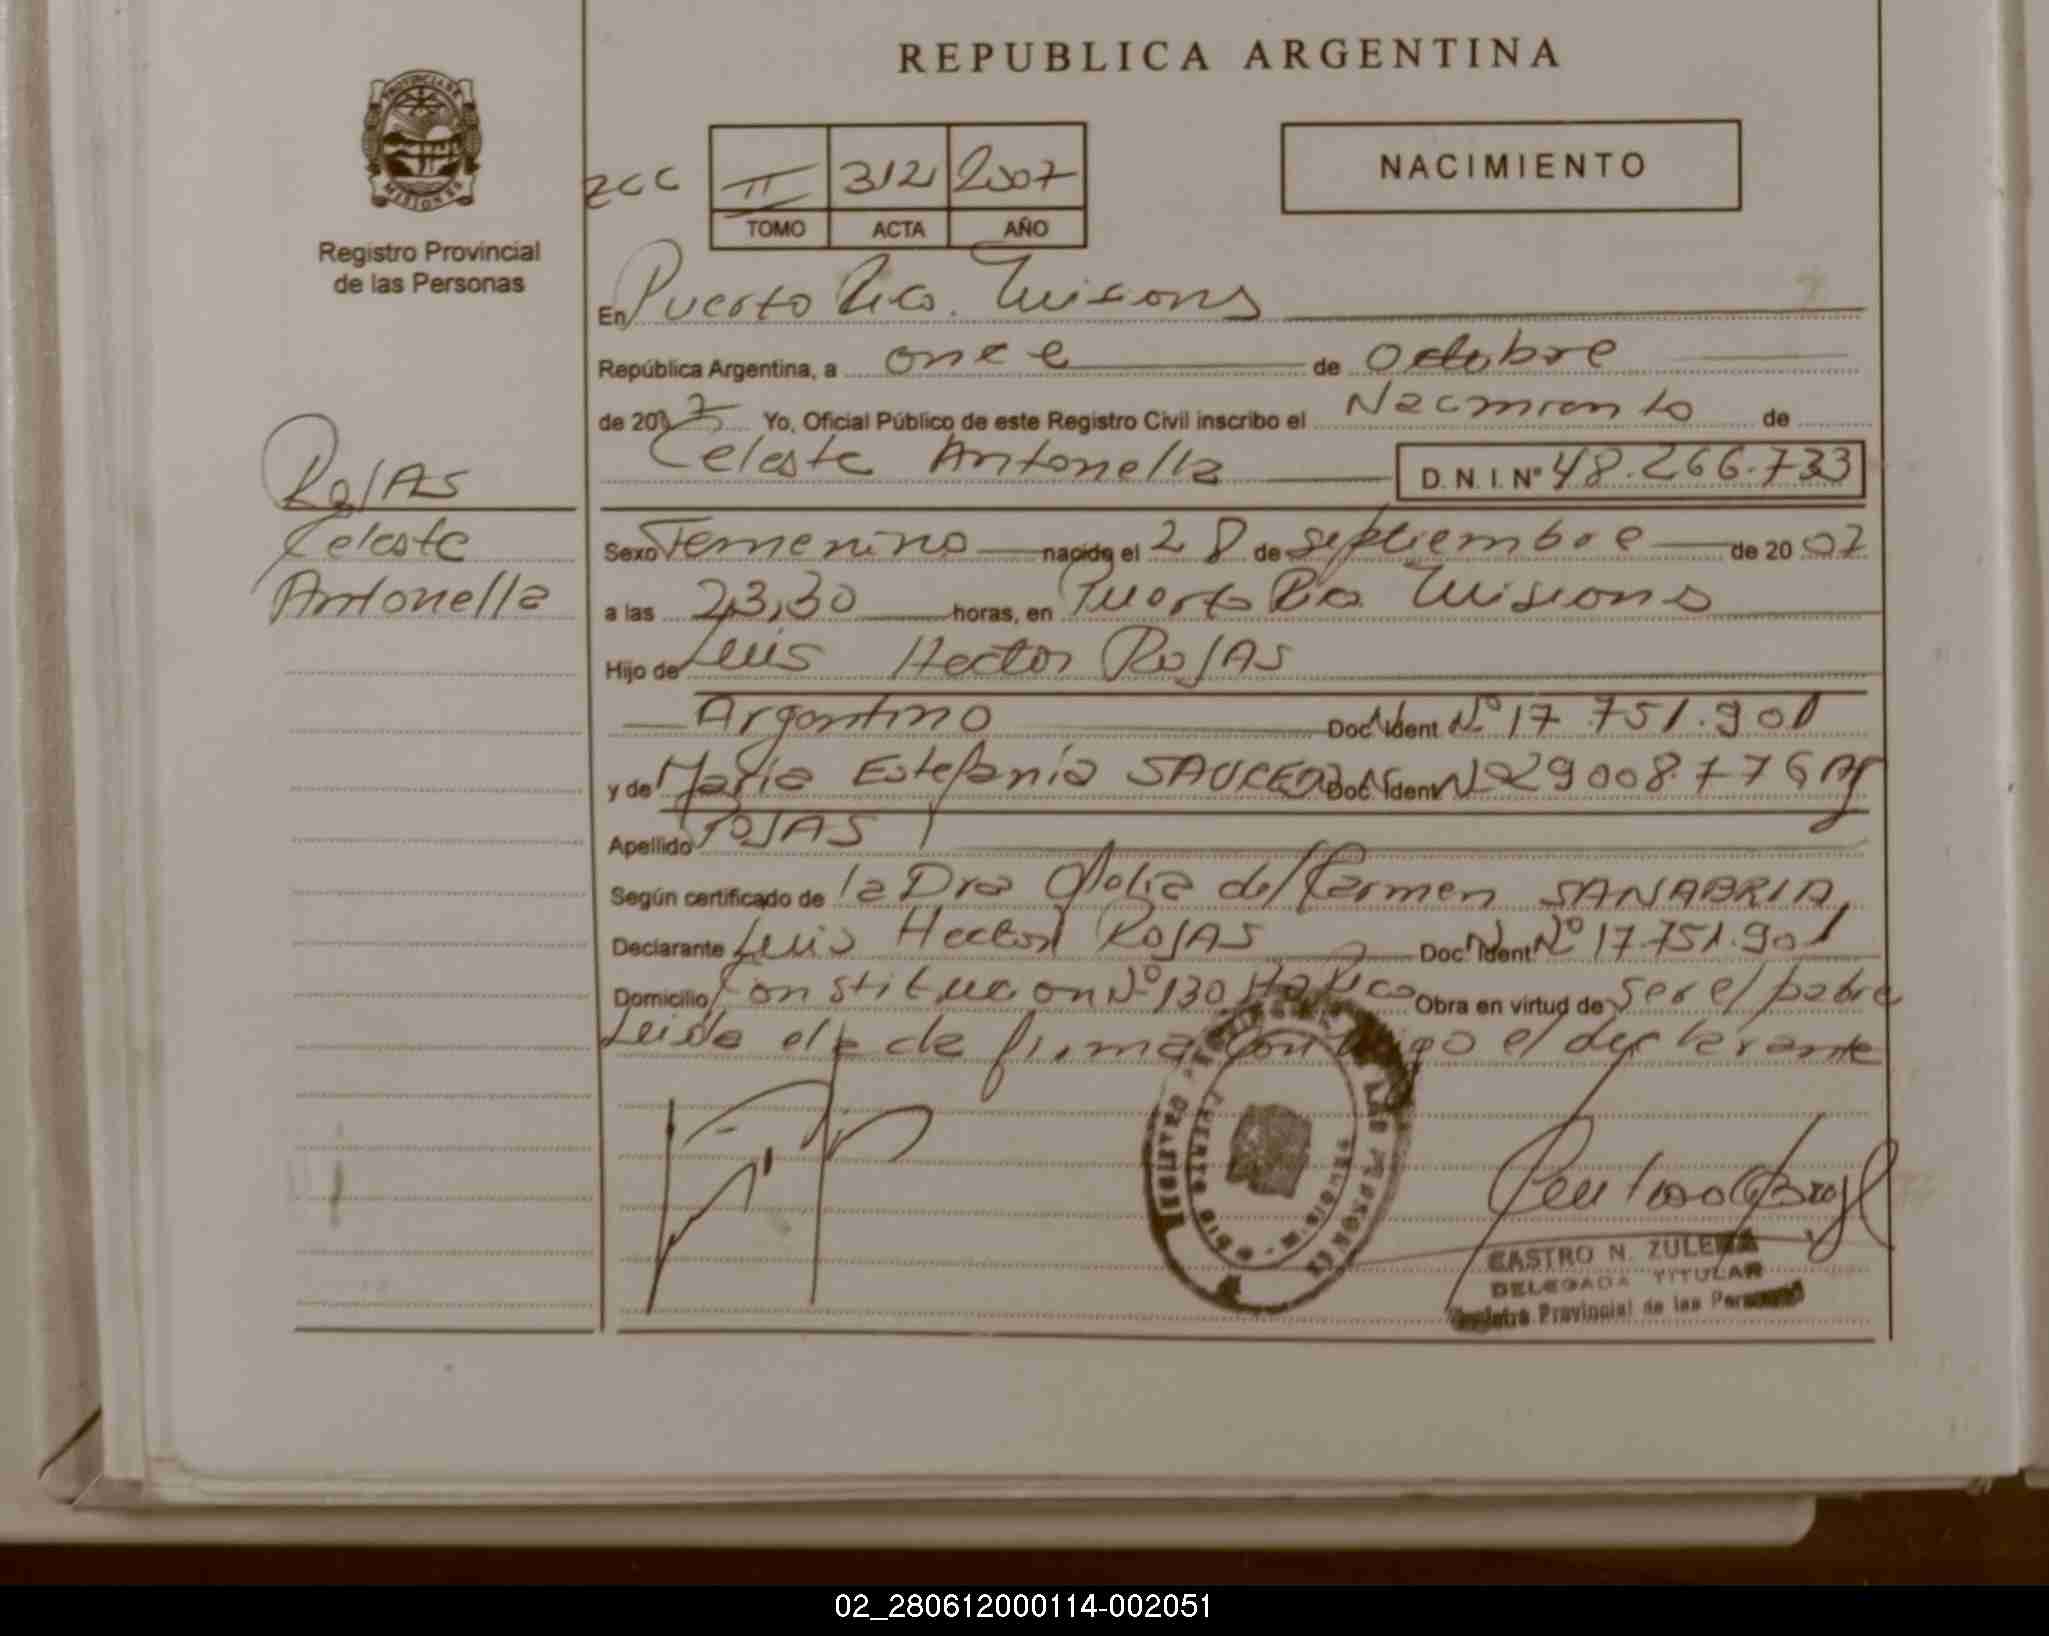 REPUBLICA ARGENTINA
PROVINCIA DE
MISIONES
Registro Provincial
de las Personas
II 312 2007
TOMO ACTA AÑO
NACIMIENTO
En Puerto Rico. Misiones
República Argentina, a once de Octubre
de 2007 Yo, Oficial Público de este Registro Civil inscribo el Nacimiento de
Celeste Antonella D. N. I. Nº 48.266.733
Rojas
Celeste
Antonella
Sexo Femenino nacido el 28 de septiembre de 2007
a las 23,30 horas, en Puerto Rico Misiones
Hijo de Luis Hector Rojas
Argentino Doc. Ident. Nº 17.751.901
y de Maria Estefania SAUCEDO Doc. Ident. Nº 29008776 Arg
Apellido ROJAS
Según certificado de la Dra Gloria del Carmen SANABRIA,
Declarante Luis Hector Rojas Doc. Ident. Nº 17.751.901
Domicilio Constitucion Nº 130 Pto Rico Obra en virtud de ser el padre
Leida el acta firma conmigo el declarante
CASTRO N. ZULEMA
DELEGADA TITULAR
Registro Provincial de las Personas
02_280612000114-002051